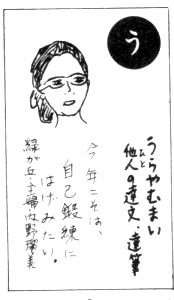 う
うらやむまい
他人の達文、達筆
ひと
今年こそは、
自己鍛練に
はげみたい。
緑が丘・主婦内野瑠美